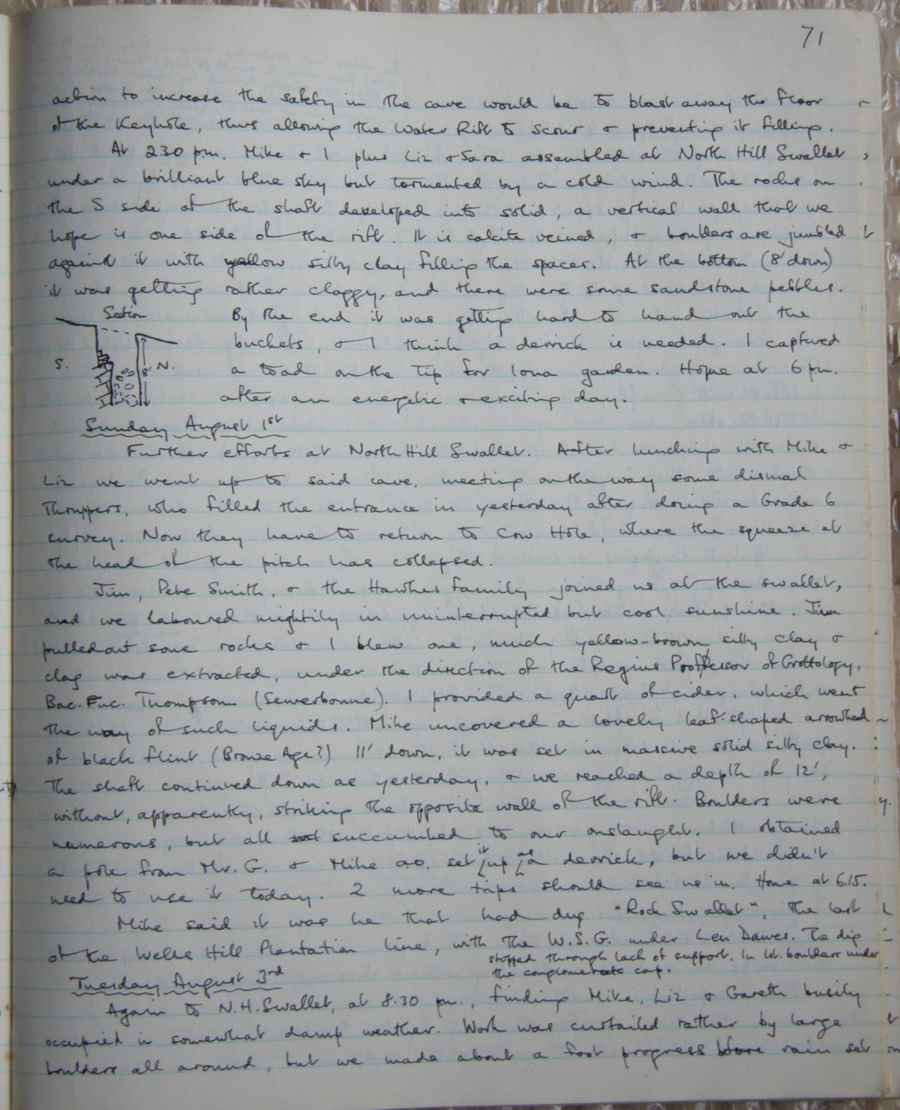 71
action to increase the safety in the cave would be to blast away the floor
of the Keyhole, thus allowing the Water Rift to scour & preventing it filling.
At 2.30 pm. Mike & I plus Liz & Sara assembled at North Hill Swallet
under a brilliant blue sky but tormented by a cold wind. The rocks on
the S side of the shaft developed into solid, a vertical wall that we
hope is one side of the rift. It is calcite veined, & boulders are jumbled
against it with yellow silty clay filling the spaces. At the bottom (8' down)
it was getting rather claggy, and there were some sandstone pebbles.
Section
S.
N.
8'
By the end it was getting hard to hand out the
buckets, & I think a derrick is needed. I captured
a toad on the tip for Iona garden. Home at 6 pm.
after an energetic & exciting day.
Sunday August 1st
Further efforts at North Hill Swallet. After lunching with Mike &
Liz we went up to said cave, meeting on the way some dismal
Thruppers, who filled the entrance in yesterday after doing a Grade 6
survey. Now they have to return to Cow Hole, where the squeeze at
the head of the pitch has collapsed.
Jim, Pete Smith, & the Hawkes family joined us at the swallet,
and we laboured mightily in uninterrupted but cool sunshine. Jim
pulled out some rocks & I blew one, much yellow-brown silty clay &
clag was extracted, under the direction of the Regius Professor of Grottology,
Bac. Fuc. Thompson (Sewerbonne). I provided a quart of cider, which went
the way of such liquids. Mike uncovered a lovely leaf-shaped arrowhead
of black flint (Bronze Age?) 11' down, it was set in massive solid silty clay.
The shaft continued down as yesterday, & we reached a depth of 12',
without, apparently, striking the opposite wall of the rift. Boulders were
numerous, but all succumbed to our onslaught. I obtained
a pole from Mr. G. & Mike set it up as a derrick, but we didn't
need to use it today. 2 more trips should see us in. Home at 6.15.
Mike said it was he that had dug "Rock Swallet", the last
of the Wells Hill Plantation line, with the W.S.G. under Len Dawes. The dig
stopped through lack of support. In lst. boulders under
the conglomerate cap.
Tuesday August 3rd
Again to N.H. Swallet, at 8.30 pm., finding Mike, Liz & Gareth busily
occupied in somewhat damp weather. Work was curtailed rather by large
boulders all around, but we made about a foot progress before rain set